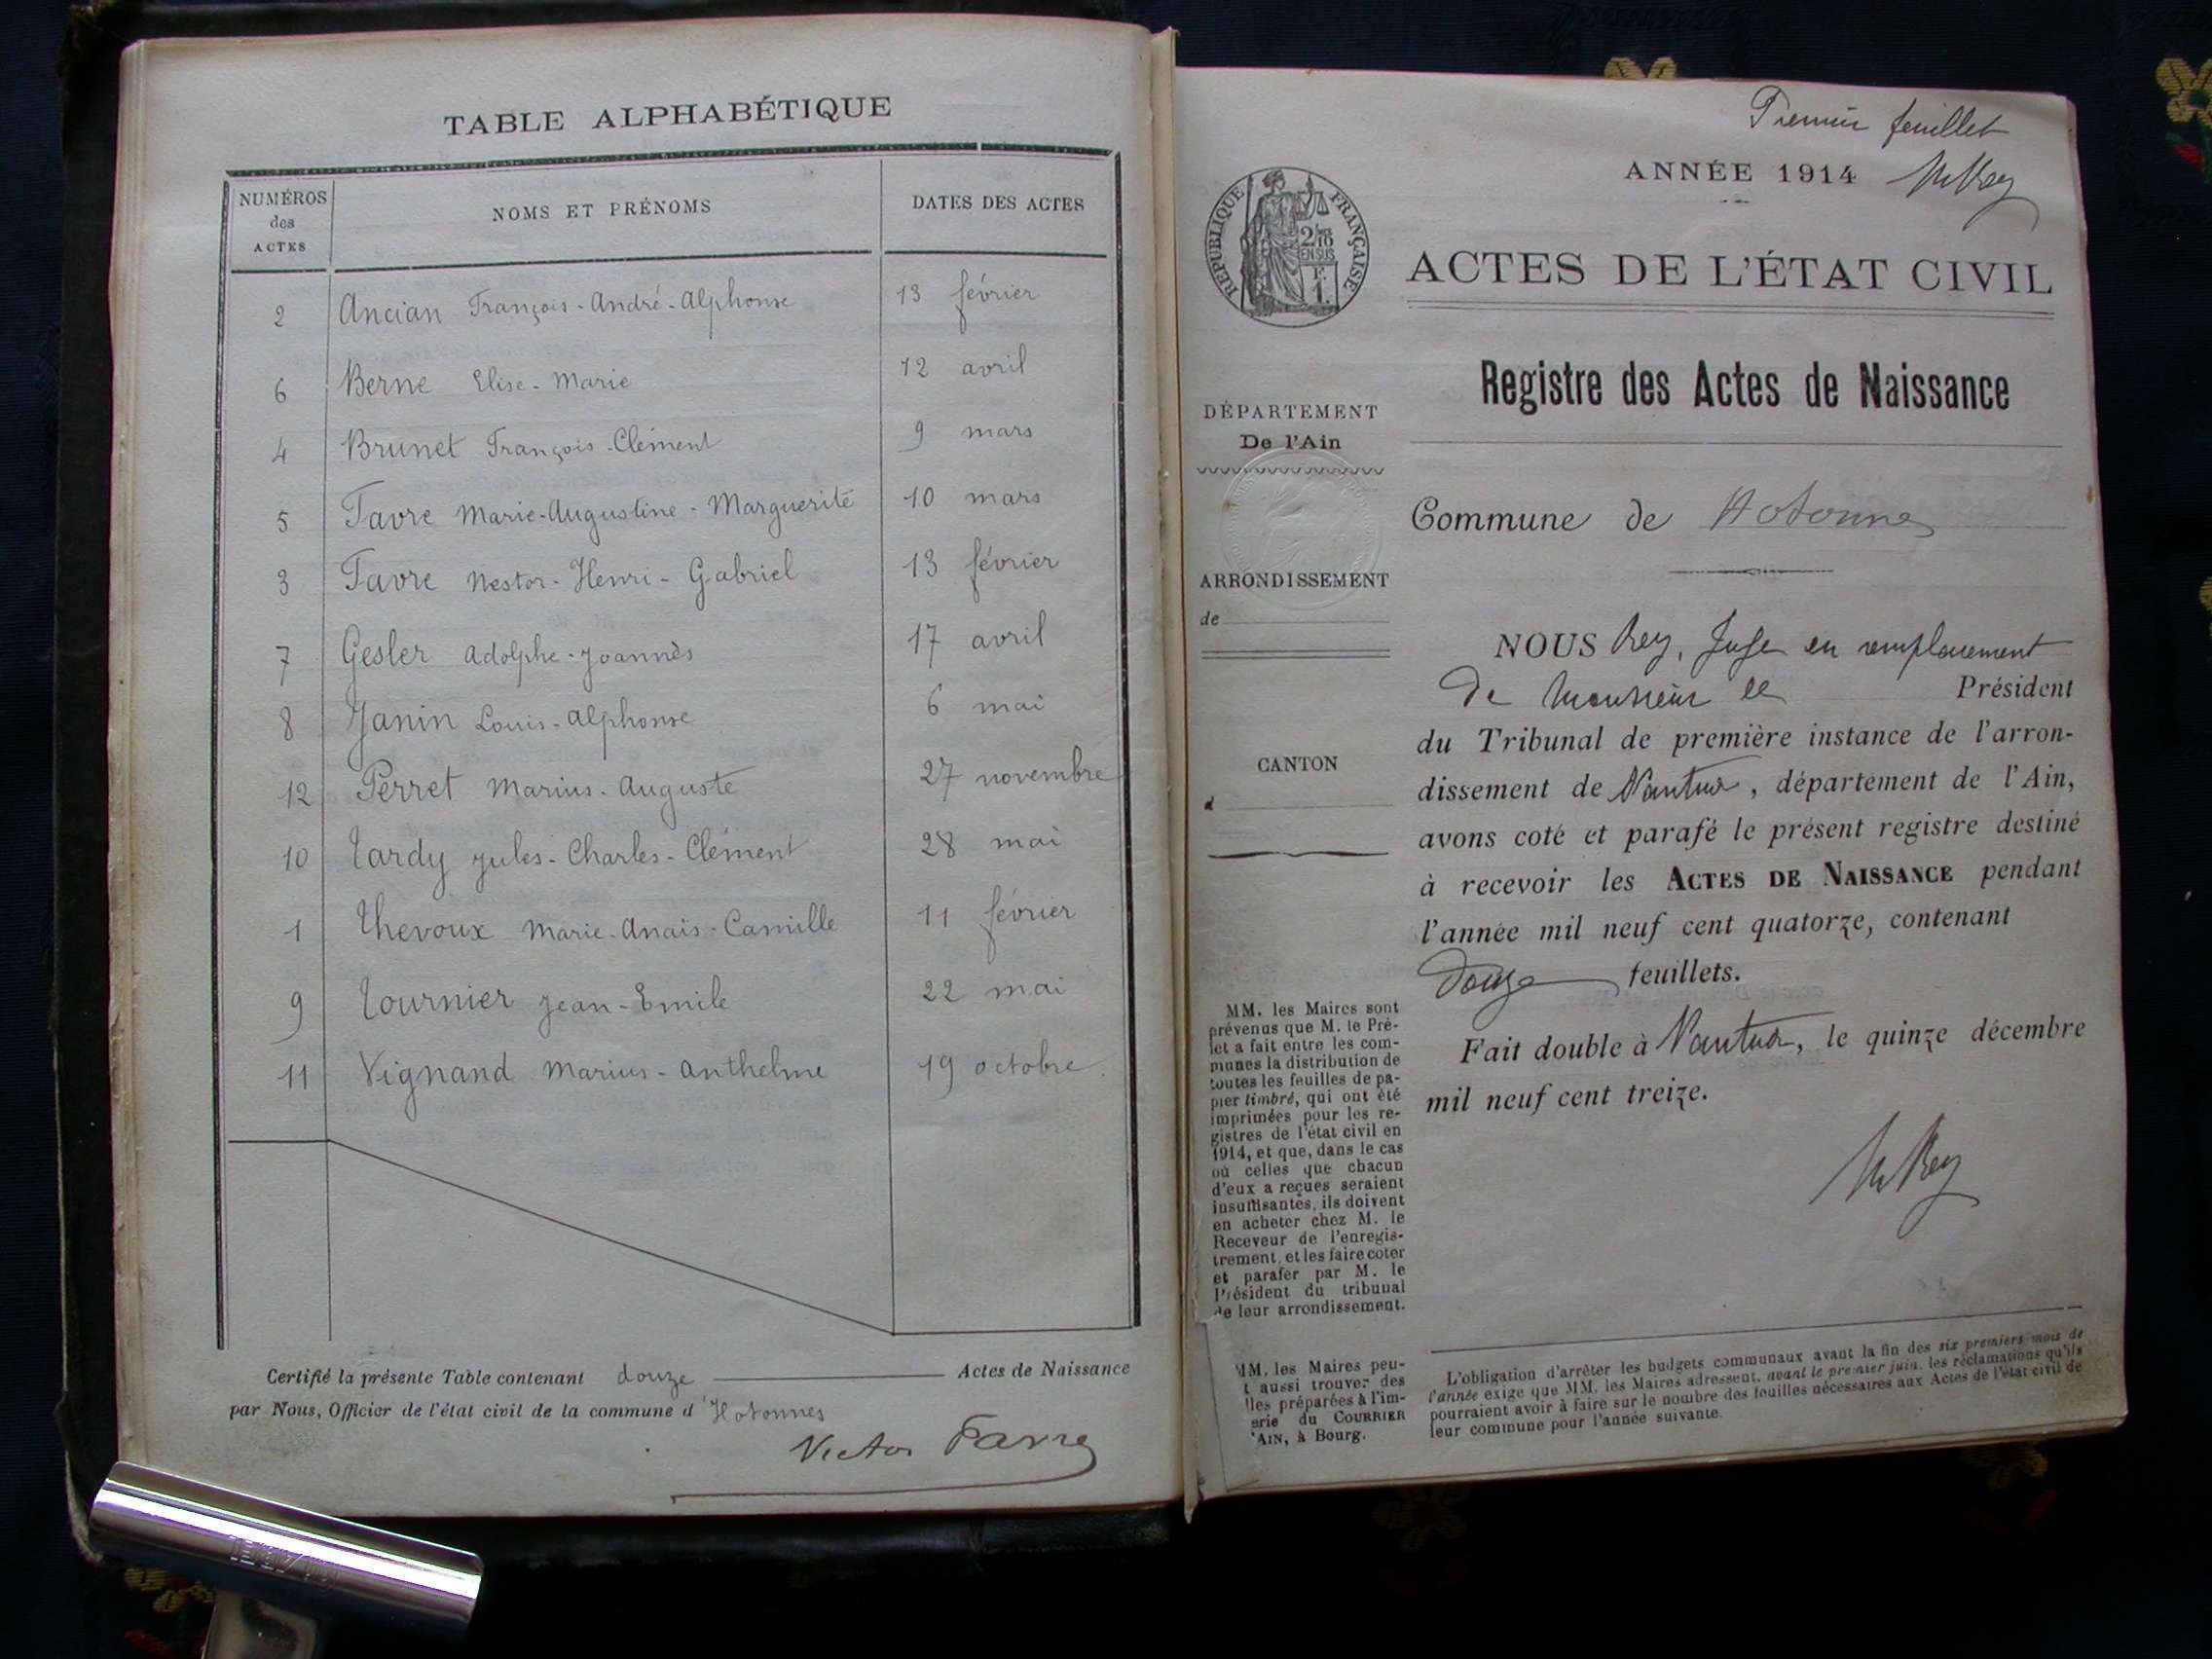 TABLE ALPHABÉTIQUE
NUMÉROS des ACTES NOMS ET PRÉNOMS DATES DES ACTES
2 Ancian François-André-Alphonse 13 février
6 Berne Elise-Marie 12 avril
4 Brunet François-Clément 9 mars
5 Favre Marie-Augustine-Marguerite 10 mars
3 Favre Nestor-Henri-Gabriel 13 février
7 Gesler Adolphe-Joannès 17 avril
8 Janin Louis-Alphonse 6 mai
12 Perret Marius-Auguste 27 novembre
10 Tardy Jules-Charles-Clément 28 mai
1 Thevoux Marie-Anaïs-Camille 11 février
9 Tournier Jean-Emile 22 mai
11 Vignand Marius-Anthelme 19 octobre.
Certifié la présente Table contenant douze Actes de Naissance
par Nous, Officier de l'état civil de la commune d'Hotonnes
Victor Favre
Premier feuillet
ANNÉE 1914
RÉPUBLIQUE FRANÇAISE
2/10
EN SUS
F.
1.
ACTES DE L'ÉTAT CIVIL
Registre des Actes de Naissance
DÉPARTEMENT
De l'Ain
Commune de Hotonnes
ARRONDISSEMENT
de
CANTON
d
NOUS Rey, Juge en remplacement
de Monsieur le Président
du Tribunal de première instance de l'arron-
dissement de Nantua, département de l'Ain,
avons coté et parafé le présent registre destiné
à recevoir les ACTES DE NAISSANCE pendant
l'année mil neuf cent quatorze, contenant
douze feuillets.
Fait double à Nantua, le quinze décembre
mil neuf cent treize.
Rey
MM. les Maires sont
prévenus que M. le Pré-
fet a fait entre les com-
munes la distribution de
toutes les feuilles de pa-
pier timbré, qui ont été
imprimées pour les re-
gistres de l'état civil en
1914, et que, dans le cas
où celles que chacun
d'eux a reçues seraient
insuffisantes, ils doivent
en acheter chez M. le
Receveur de l'enregis-
trement, et les faire coter
et parafer par M. le
Président du tribunal
de leur arrondissement.
MM. les Maires peu-
t aussi trouver des
lles préparées à l'im-
erie du COURRIER
'AIN, à Bourg.
L'obligation d'arrêter les budgets communaux avant la fin des six premiers mois de
l'année exige que MM. les Maires adressent, avant le premier juin, les réclamations qu'ils
pourraient avoir à faire sur le nombre des feuilles nécessaires aux Actes de l'état civil de
leur commune pour l'année suivante.